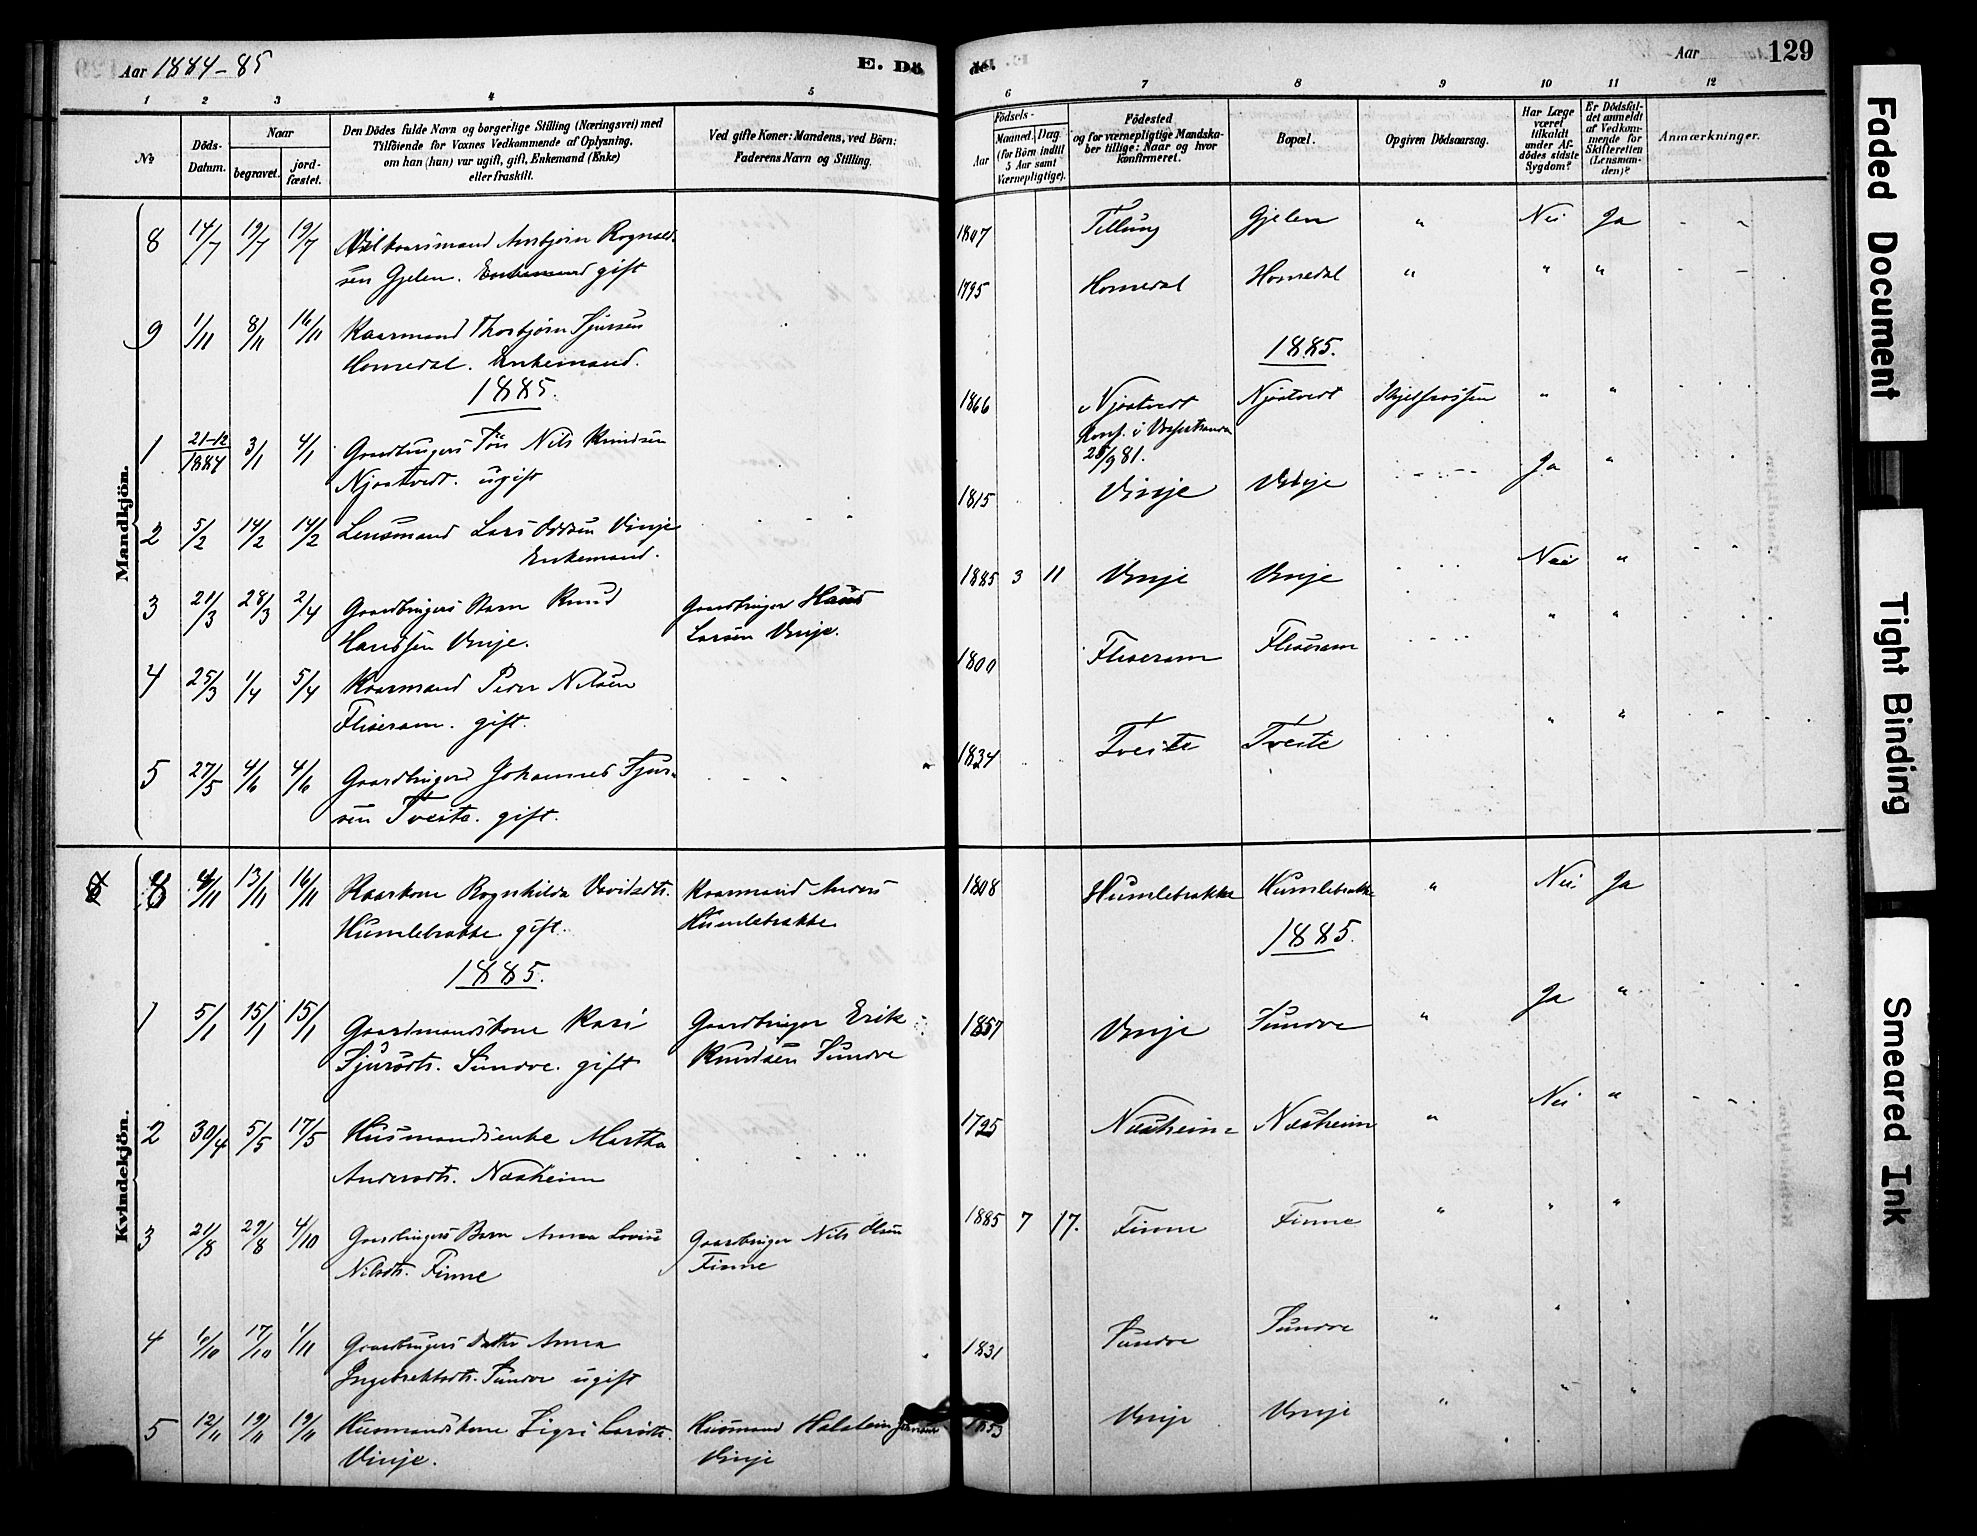 Aar 1884-85
E. Dö
de.
Aar
129
1 2 3 4 5 6 7 8 9 10 11 12
No
Döds-
Datum.
Naar
begravet.
jord-
fæstet.
Den Dödes fulde Navn og borgerlige Stilling (Næringsvei) med
Tilföiende for Voxnes Vedkommende af Oplysning,
om han (hun) var ugift, gift, Enkemand (Enke)
eller fraskilt.
Ved gifte Koner: Mandens, ved Börn:
Faderens Navn og Stilling.
Födsels-
Aar
Maaned. Dag.
(for Börn indtil
5 Aar samt
Værnepligtige).
Födested
og for værnepligtige Mandska-
ber tillige: Naar og hvor
Konfirmeret.
Bopæl.
Opgiven Dödsaarsag.
Har Læge
været
tilkaldt
under Af-
dödes sidste
Sygdom?
Er Dödsfal-
det anmeldt
af Vedkom-
mende for
Skifteretten
(Lensman-
den)?
Anmærkninger.
Mandkjön.
8 14/7 19/7 19/7 Vilkaarsmand Ansbjørn Rognald-
sen Gjelen. Enkemand gift
1807 Tillung Gjelen " Nei Ja - -
9 1/11 8/11 16/11 Kaarmand Thorbjørn Sjursen
Homedal. Enkemand.
1795 Homedal Homedal " " " - -
1885.
1885.
1 21-12/1884 3/1 4/1 Gaardbrugers Søn Nils Knudsen
Njøstvedt. ugift
1866 Njøstvedt Njøstvedt " "
Konf. i
28/9 81.
2 5/2 14/2 14/2 Lensmand Lars Oddsen Vinje
Enkemand.
1815 Vinje Vinje Ja "
3 21/3 28/3 2/4 Gaardbrugers Barn Knud
Hanssen Vinje.
Gaardbruger Hans
Larsen Vinje.
1885 3 11 Vinje Vinje Nei "
4 25/3 1/4 5/4 Kaarmand Peder Nilsen
Fliseram. gift.
1800 Fliseram Fliseram " "
5 27/5 4/6 4/6 Gaardbruger Johannes Sjur-
sen Tveite. gift.
1834 Tveite Tveite " "
Kvindekjön.
8 4/11 13/11 16/11 Kaarkone Rognhilda Davidsdtr.
Humlebrække gift.
Kaarmand Anders
Humlebrække
1808 Humlebrække Humlebrække " Nei Ja
1885.
1885.
1 5/1 15/1 15/1 Gaardmandskone Kari
Sjursdtr. Sundve. gift
Gaardbruger Erik
Knudsen Sundve
1857 Vinje Sundve " Ja "
2 30/4 5/5 17/5 Husmandsenke Martha
Andersdtr. Næsheim
1795 Næsheim Næsheim " Nei "
3 21/8 29/8 4/10 Gaardbrugers Barn Anna Lovise
Nilsdtr. Finne
Gaardbruger Nils Olsen
Finne
1885 7 17. Finne Finne " " "
4 10/10 17/10 1/11 Gaardbrugers Datter Anna
Ingebrektsdtr. Sundve ugift
1831 Sundve Sundve " " "
5 12/11 19/11 19/11 Husmandskone Sigri Larsdtr.
Vinje.
Husmand Halstein
Vinje
1853 Vinje Vinje " " "
Faded Document
Tight Binding
Smeared Ink